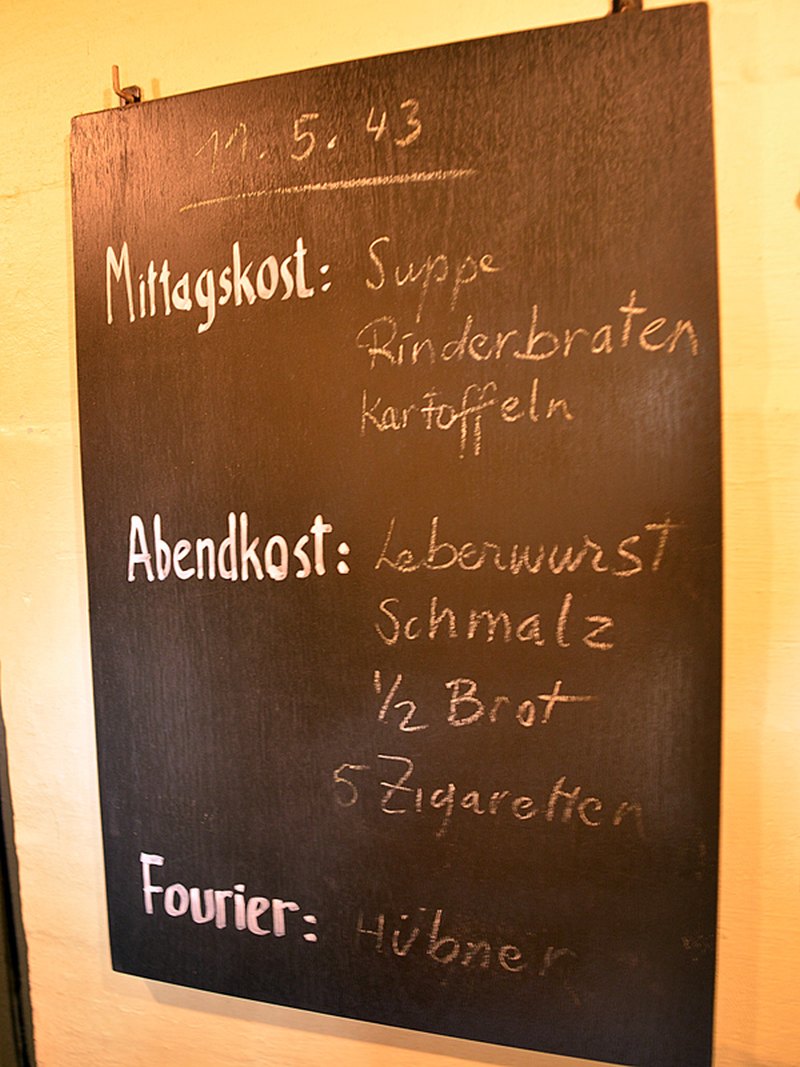 11. 5. 43
Mittagskost: Suppe
Rinderbraten
Kartoffeln
Abendkost: Leberwurst
Schmalz
1/2 Brot
5 Zigaretten
Fourier: Hübner